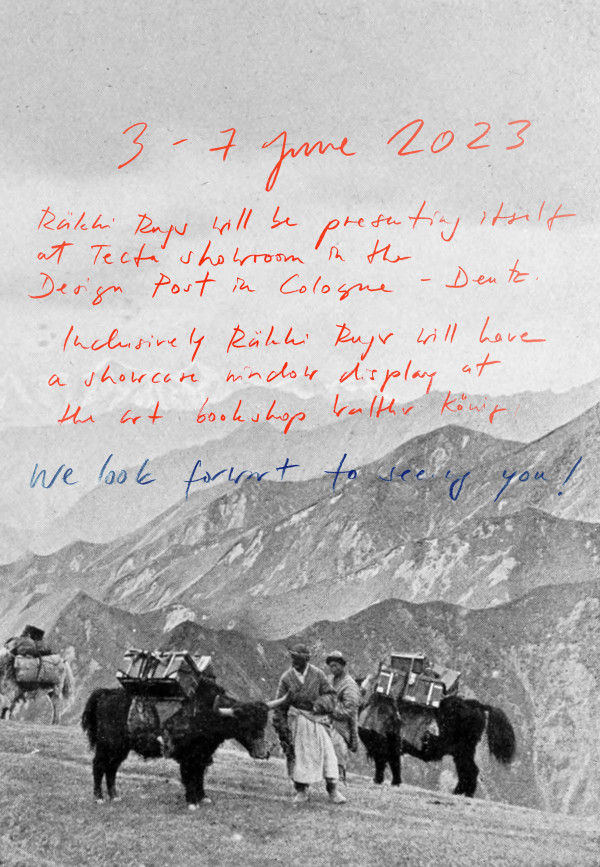 3 - 7 June 2023
Räkhi Rugs will be presenting itself
at Tecta showroom in the
Design Post in Cologne - Deutz.
Inclusively Räkhi Rugs will have
a showcase window display at
the art bookshop Walther König
We look forwart to seeing you!